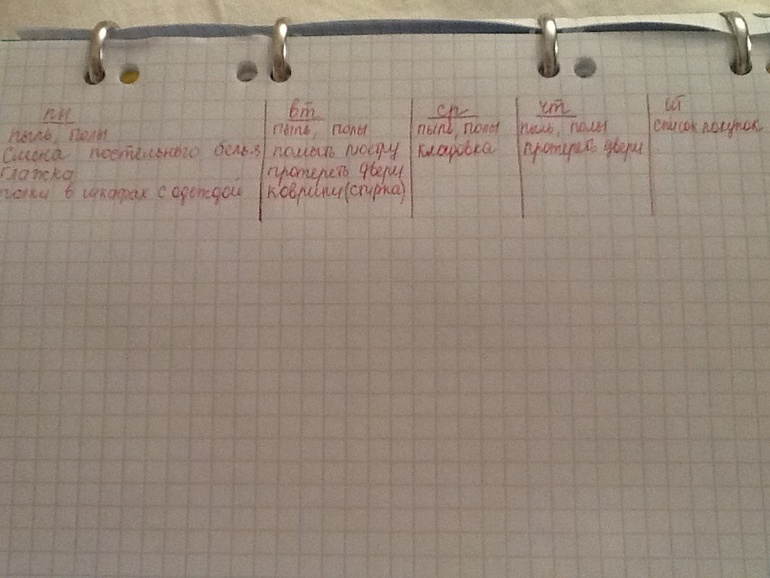 пн
пыль, полы
Смена постельного белья
Глажка
полки в шкафах с одеждой
вт
пыль, полы
помыть люстру
протереть двери
коврики (стирка)
ср
пыль, полы
кладовка
чт
пыль, полы
протереть двери
пт
список покупок